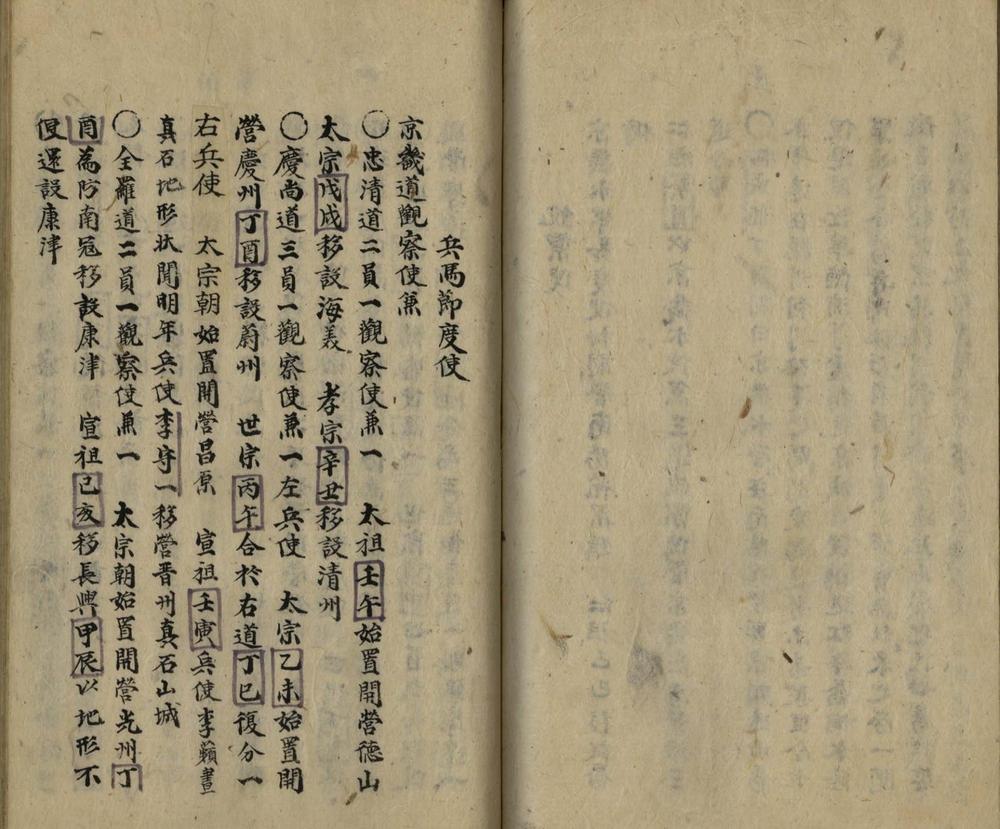 兵馬節度使
京畿道觀察使兼
○忠清道二員一觀察使兼一 太祖壬午始置開營德山
太宗戊戌移設海美 孝宗辛丑移設清州
○慶尚道三員一觀察使兼一左兵使 太宗乙未始置開
營慶州丁酉移設蔚州 世宗丙午合於右道丁巳復分一
右兵使 太宗朝始置開營昌原 宣祖壬寅兵使李蘋晝
真石地形狀聞明年兵使李守一移營晋州真石山城
○全羅道二員一觀察使兼一 太宗朝始置開營光州丁
酉為防南冦移設康津 宣祖己亥移長興甲辰以地形不
便還設康津